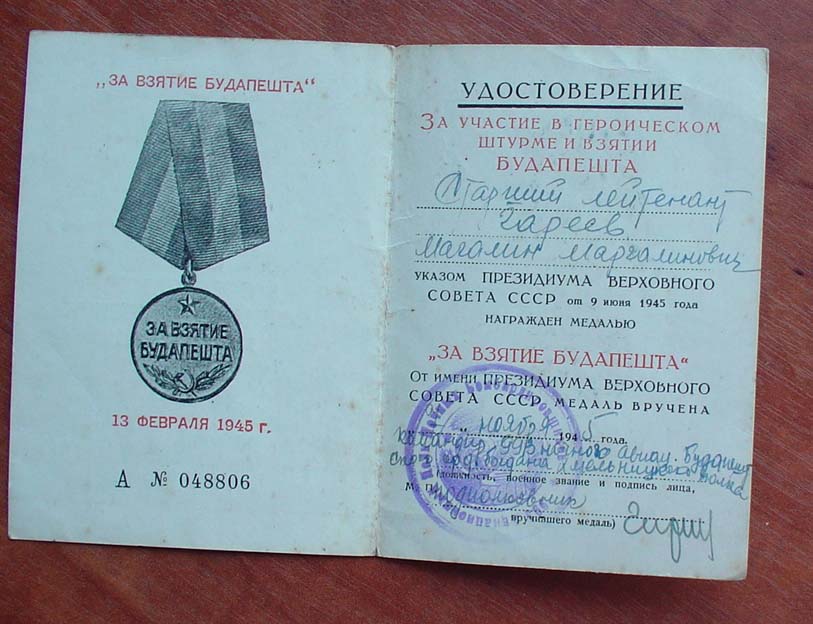 „ЗА ВЗЯТИЕ БУДАПЕШТА“
ЗА ВЗЯТИЕ
БУДАПЕШТА
13 ФЕВРАЛЯ 1945 г.
А № 048806
УДОСТОВЕРЕНИЕ
ЗА УЧАСТИЕ В ГЕРОИЧЕСКОМ
ШТУРМЕ И ВЗЯТИИ
БУДАПЕШТА
Старший лейтенант
Гареев
УКАЗОМ ПРЕЗИДИУМА ВЕРХОВНОГО
СОВЕТА СССР от 9 июня 1945 года
НАГРАЖДЕН МЕДАЛЬЮ
„ЗА ВЗЯТИЕ БУДАПЕШТА“
От имени ПРЕЗИДИУМА ВЕРХОВНОГО
СОВЕТА СССР МЕДАЛЬ ВРУЧЕНА
„ ноября 1945 года.
Командир 993 ночного Авиац. Будапешт
орд. Богдана Хмельницкого полка
(должность, военное звание и подпись лица,
М. П. подполковник
вручившего медаль)